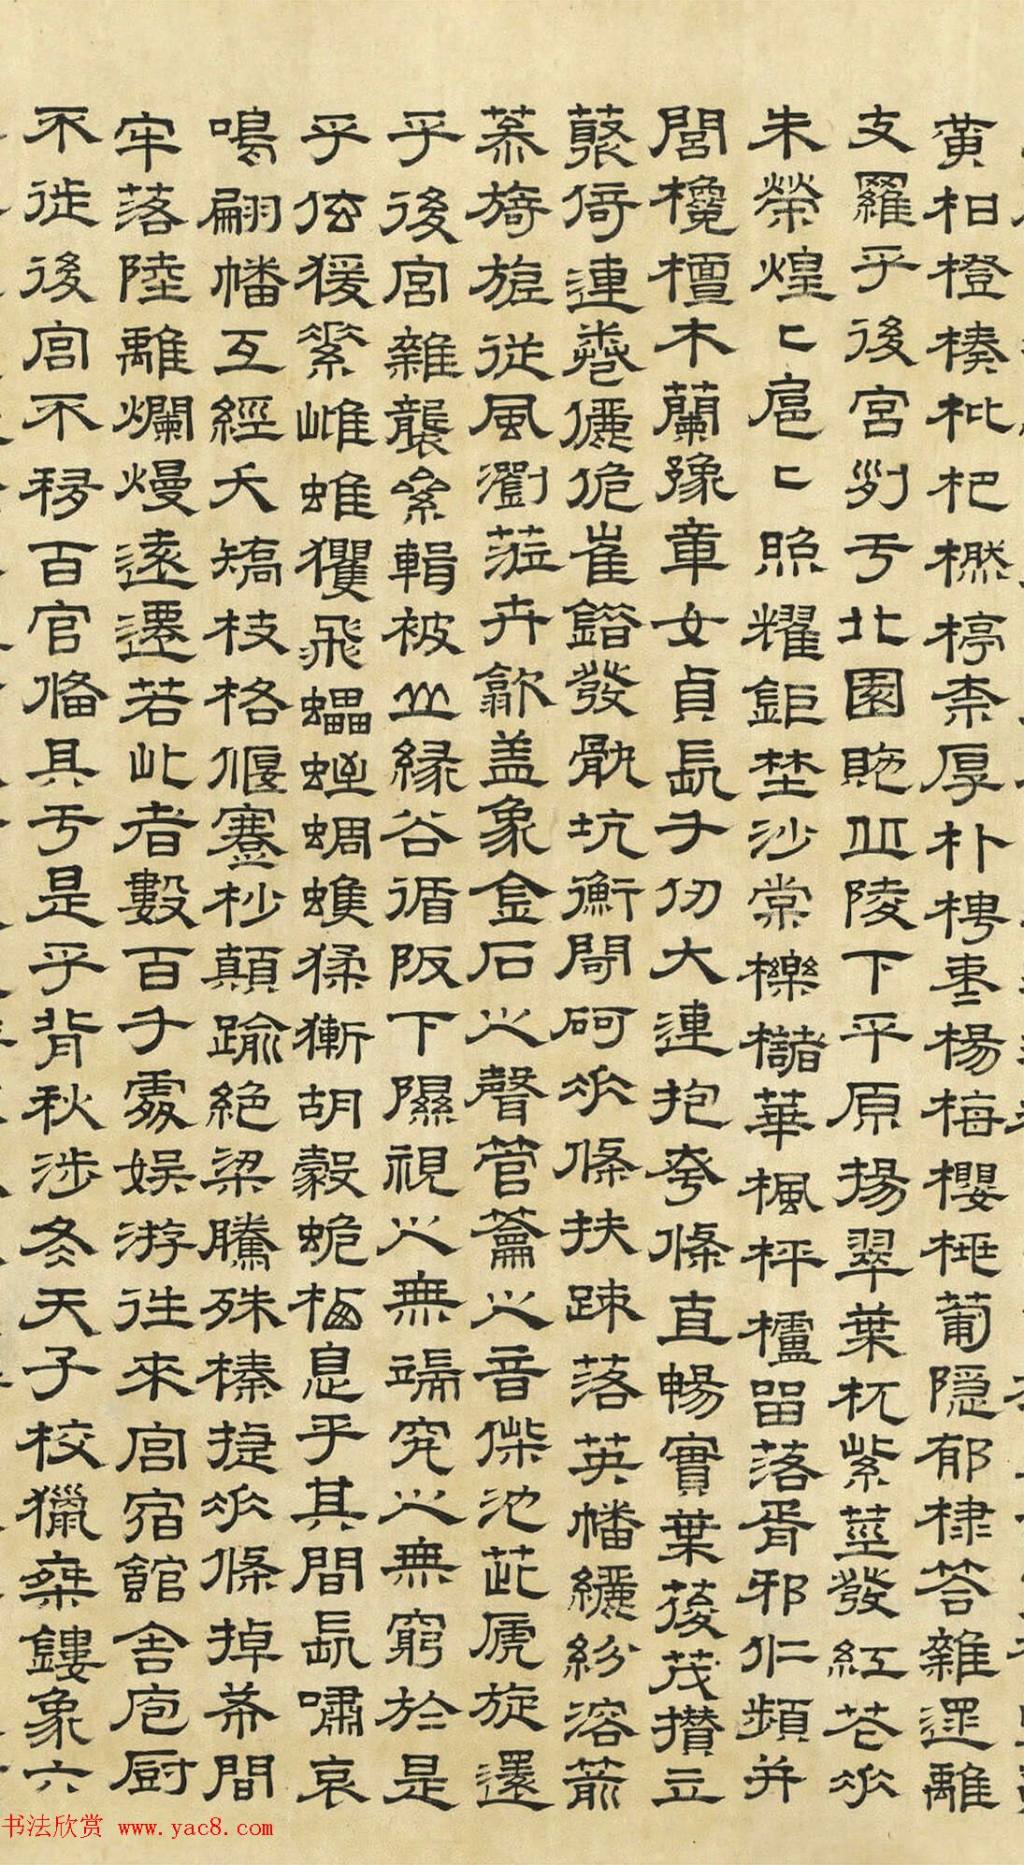 黃柑橙楱枇杷橪楟柰厚朴梬棗楊梅櫻桃葡隱郁棣荅雜遝離
支羅乎後宮列于北園貤丘陵下平原揚翠葉杌紫莖發紅花垂
朱榮煌〻扈〻照耀鉅埜沙棠櫟櫧華楓枰櫨留落胥邪仁頻并
閭欃檀木蘭豫章女貞長千仞大連抱夸條直暢實葉葰茂攢立
叢倚連卷儷佹崔錯發骫坑衡閜砢垂條扶疎落英幡纚紛溶箾
蔘旖旎從風瀏莅卉歙盖象金石之聲管籥之音偨池茈虒旋還
乎後宮雜襲絫輯被山緣谷循阪下隰視之無端究之無窮於是
乎玄猨素雌蜼玃飛蠝蛭蜩蠗猱獑胡豰蛫栖息乎其間長嘯哀
鳴翩幡互經夭矯枝格偃蹇杪顛踰絕梁騰殊榛捷垂條掉希間
牢落陸離爛熳遠遷若此者數百千處娛游往來宮宿館舍庖厨
不徙後宮不移百官備具于是乎背秋涉冬天子校獵乘鏤象六
书法欣赏 www.yac8.com